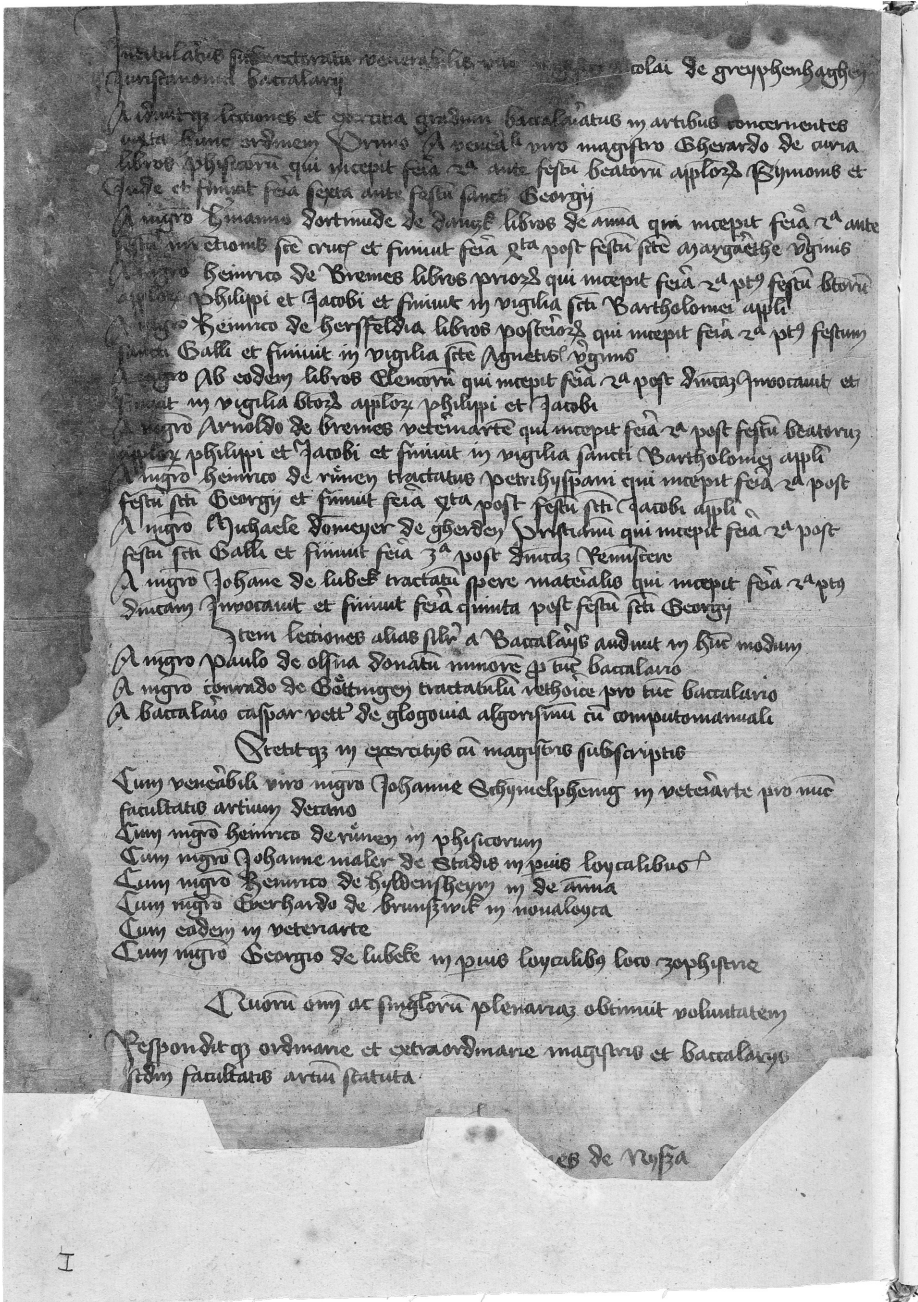 Intitulatus sub rectoratu venerabilis viri nicolai de greyphenhaghen
Juriscanonici baccalarij
Audiuitqz lectiones et exercitia gradum baccalariatus in artibus concernentes
iuxta hunc ordinem Primo A venerabili viro magistro Gherardo de curia
libros phisicorū qui incepit feria 2ª ante festū beatorū applorꝝ Symonis et
Jude et finiuit feria sexta ante festū sancti Georgij
A mgro hmanno dortmūde de danczk libros de anima qui incepit feria 2ª ante
festū inuētionis scte crucis et finiuit feria xta post festū scte Margarethe virginis
A mgro heinrico de Bremes libros priorꝝ qui incepit feria 2ª ptꝰ festū btorū
applorꝝ Philippi et Jacobi et finiuit in vigilia scti Bartholomei appli
A mgro Heinrico de hersffeldia libros posteriorꝝ qui incepit feria 2ª ptꝰ festum
sancti Galli et finiuit in vigilia scte Agnetis virginis
A mgro Ab eodem libros Elencorū qui incepit feria 2ª post dnicaz Inuocauit et
finiuit in vigilia btorꝝ applorꝝ philippi et Jacobi
A mgro Arnoldo de bremes veterēartē qui incepit feria 2ª post festū beatoruz
applorꝝ philippi et Jacobi et finiuit in vigilia sancti Bartholomei appli
A mgro heinrico de rūnen tractatus petrihyspani qui incepit feria 2ª post
festū scti Georgij et finiuit feria xta post festū scti Jacobi appli
A mgro Michaele dōmeyer de gherden Priscianū qui incepit feria 2ª post
festū scti Galli et finiuit feria 3ª post dnicaz Reminiscere
A mgro Johane de lubek tractatū spere materialis qui incepit feria 2ª ptꝰ
dnicam Inuocauit et finiuit feria quinta post festū scti Georgij
Item lectiones alias silr a Baccalarijs audiuit in hūc modum
A mgro paulo de olsna donatū minorē p tūc baccalario
A mgro conrado de Gȯttingen tractatulū rethorice pro tūc baccalario
A baccalario caspar vett de glogouia algorismū cū computomanuali
Stetitqz in exercitijs cū magistris subscriptis
Cum venerabili viro mgro Johanne Schymelphēnig in veteriarte pro nūc
facultatis artium decano
Cum mgro heinrico de rūnen in phisicorum
Cum mgro Johanne maler de Stadis in puis loycalibus
Cum mgro Heinrico de hyldensheym in de anima
Cum mgro Euerhardo de brunszwik in noualoyca
Cum eodem in veteriarte
Cum mgro Georgio de lubeke in puis loycalibꝰ loco zophistrie
Quorū oīm ac singlorū plenariaz obtinuit voluntatem
Responditqz ordinarie et extraordinarie magistris et baccalarijs
scdm facultatis artiū statuta
nes de Nysza
I